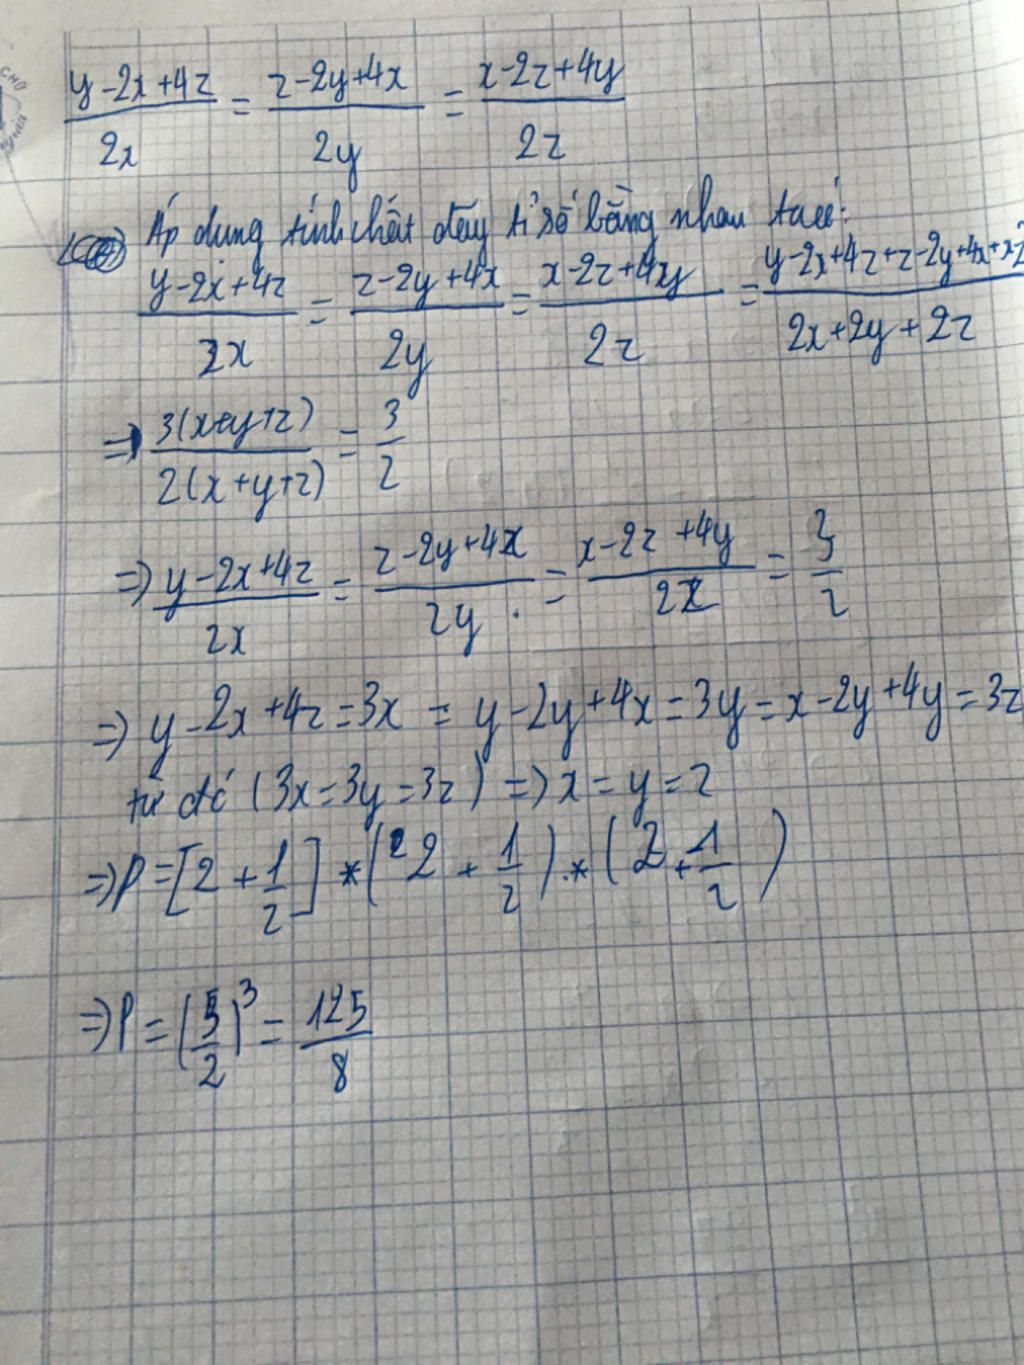 y-2x+4z/2x = z-2y+4x/2y = x-2z+4y/2z
Áp dụng tính chất dãy tỉ số bằng nhau ta có:
y-2x+4z/2x = z-2y+4x/2y = x-2z+4y/2z = y-2x+4z+z-2y+4x+x-2/2x+2y+2z
=> 3(x+y+z)/2(x+y+z) = 3/2
=> y-2x+4z/2x = z-2y+4x/2y = x-2z+4y/2z = 3/2
=> y-2x+4z=3x = y-2y+4x=3y=x-2y+4y=3z
từ đó (3x=3y=3z) => x=y=z
=> P=[2+1/2]*(2+1/2).*(2+1/2)
=> P=(5/2)^3=125/8